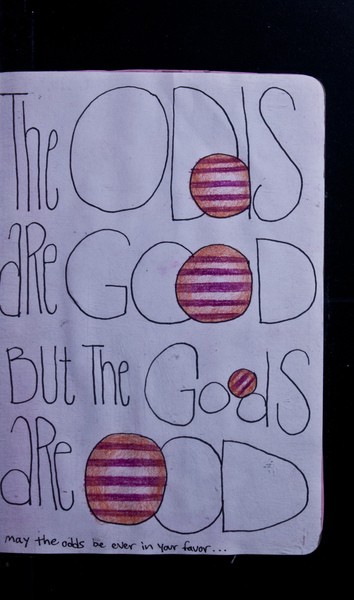 The ODdS
aRe GOOD
BUt The GoodS
aRe OOD
may the odds be ever in your favor...